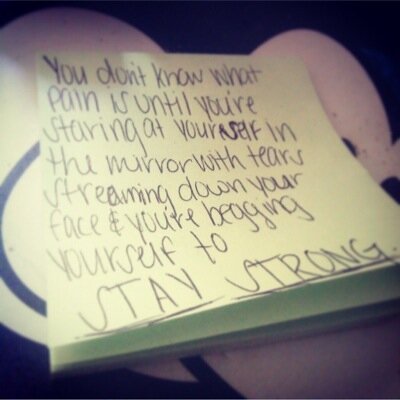 You don't know what
pain is until you're
staring at yourself in
the mirror with tears
streaming down your
face & you're begging
yourself to
STAY STRONG.